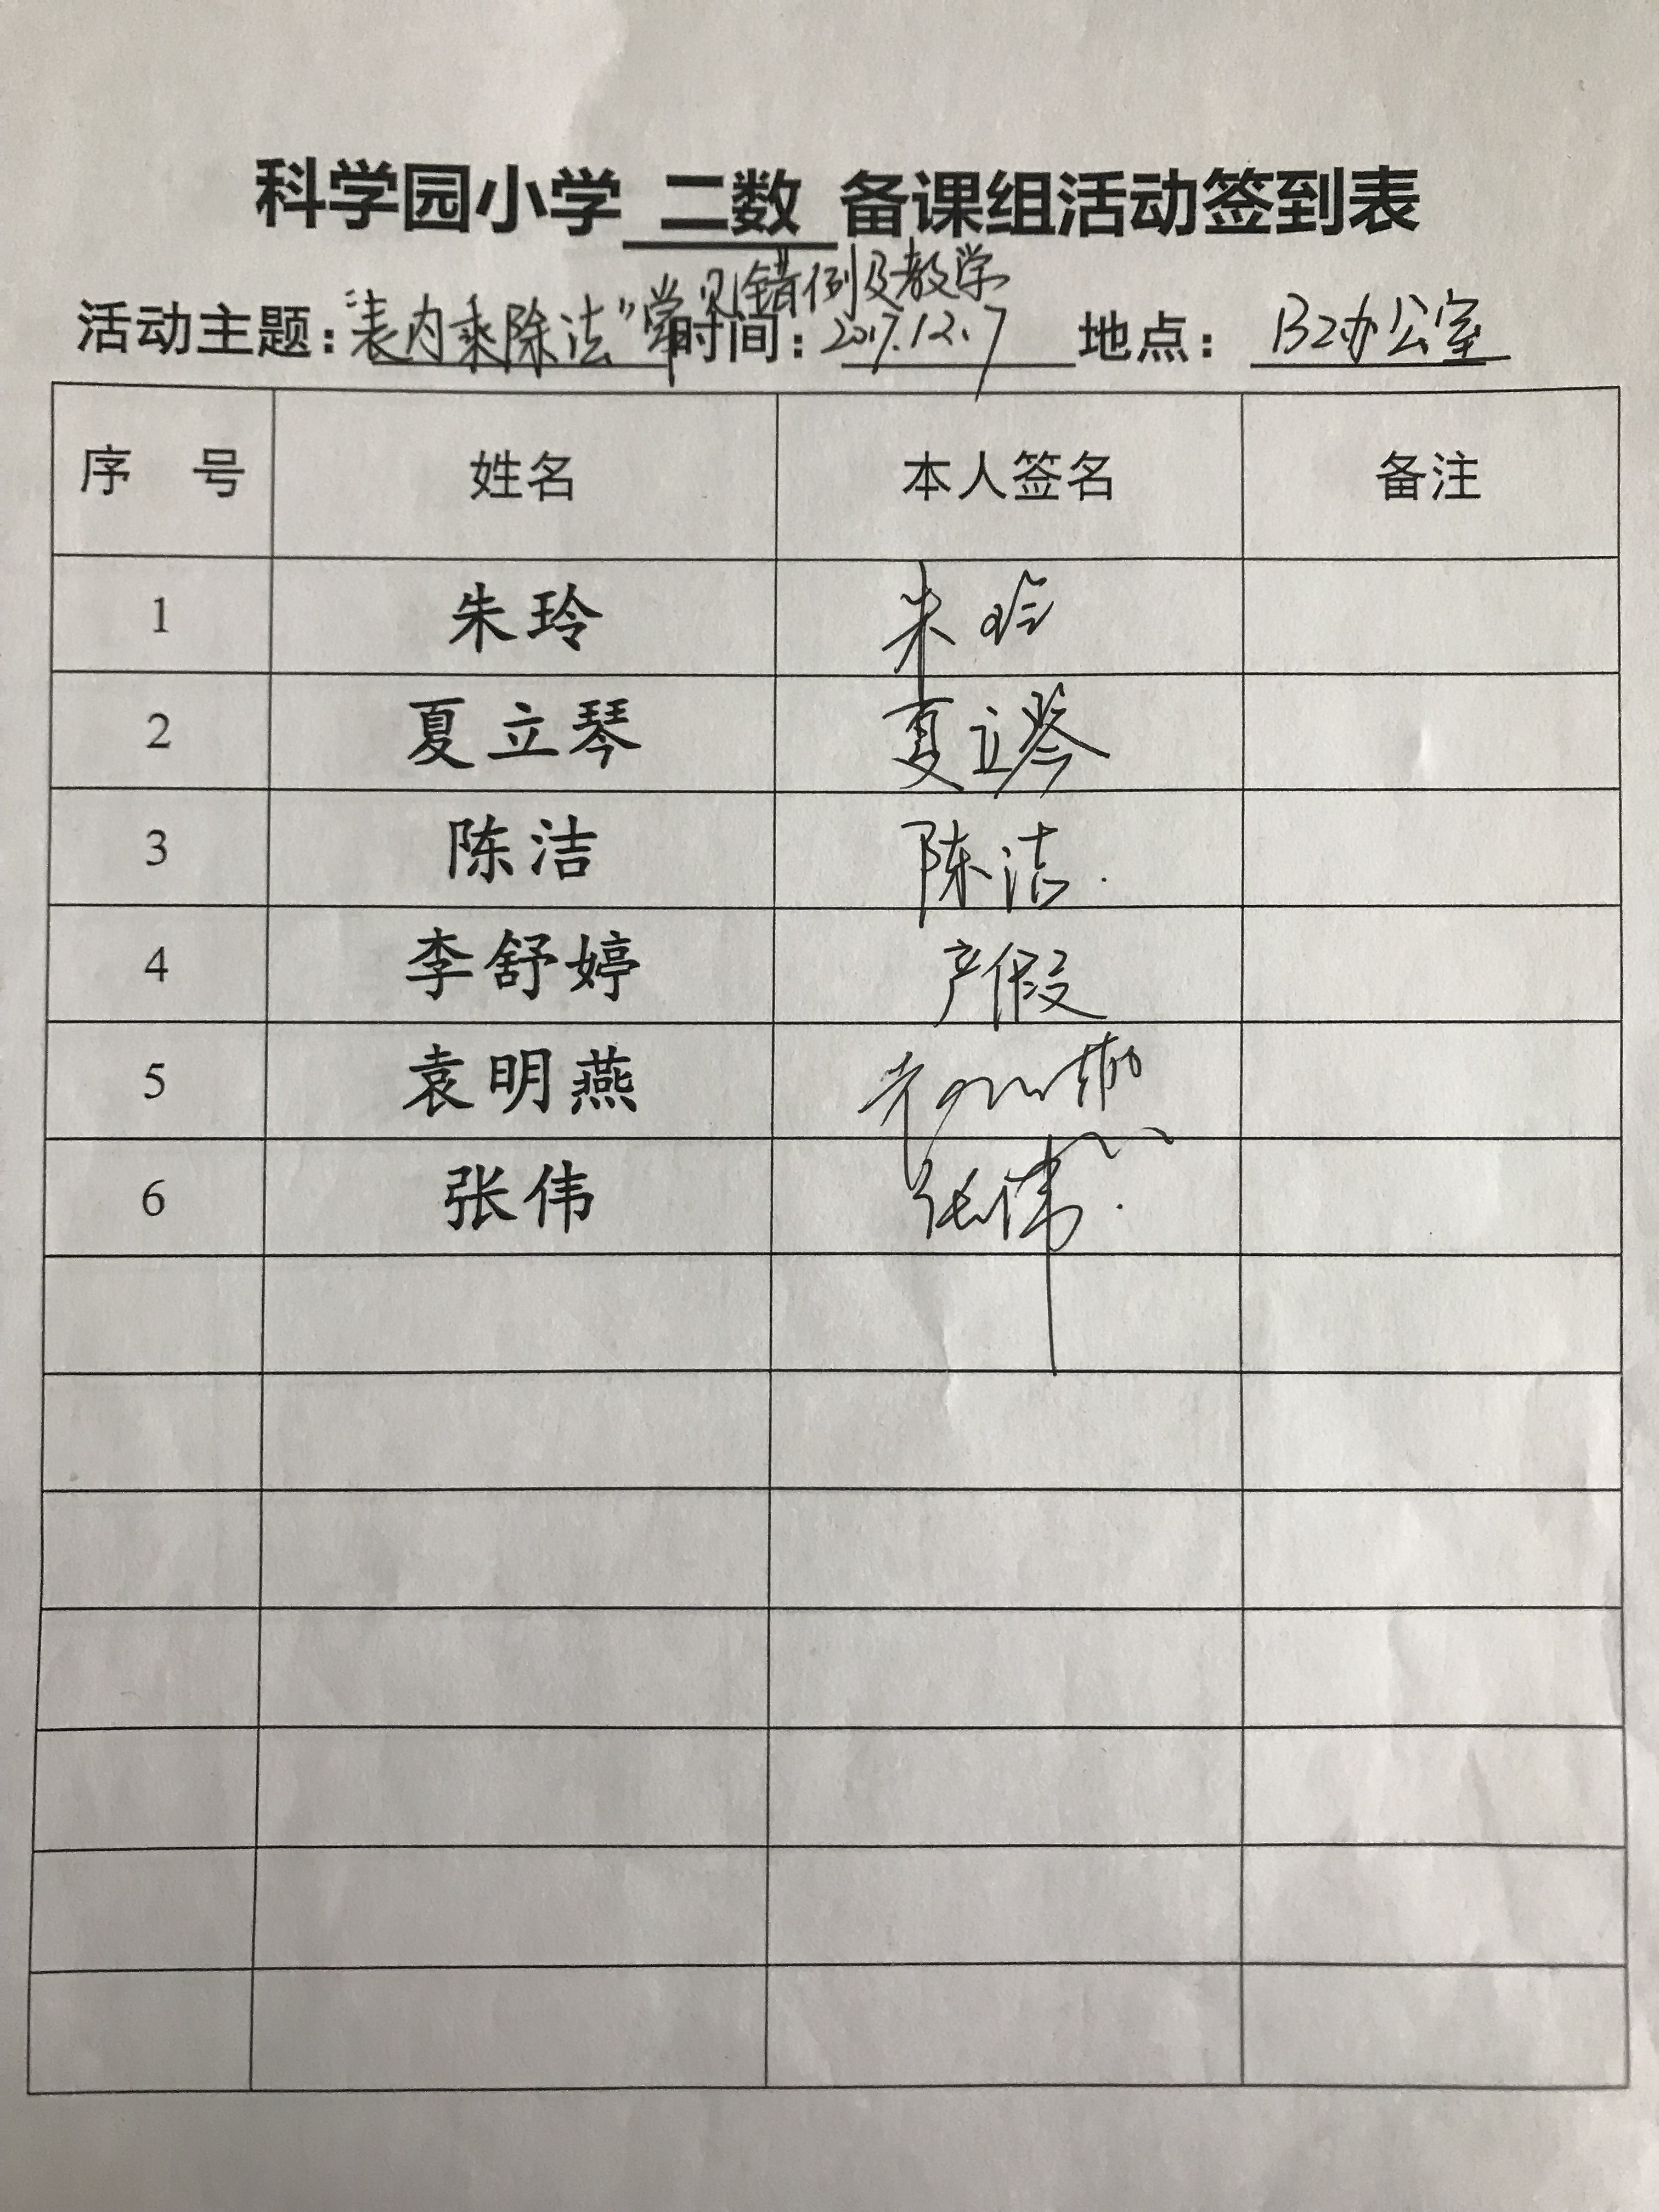 科学园小学 二数 备课组活动签到表
活动主题：“表内乘除法”常见错例及教学 时间：2017.12.7 地点：B2办公室
序 号 姓名 本人签名 备注
1 朱玲 朱玲
2 夏立琴 夏立琴
3 陈洁 陈洁.
4 李舒婷 产假
5 袁明燕
6 张伟 张伟.